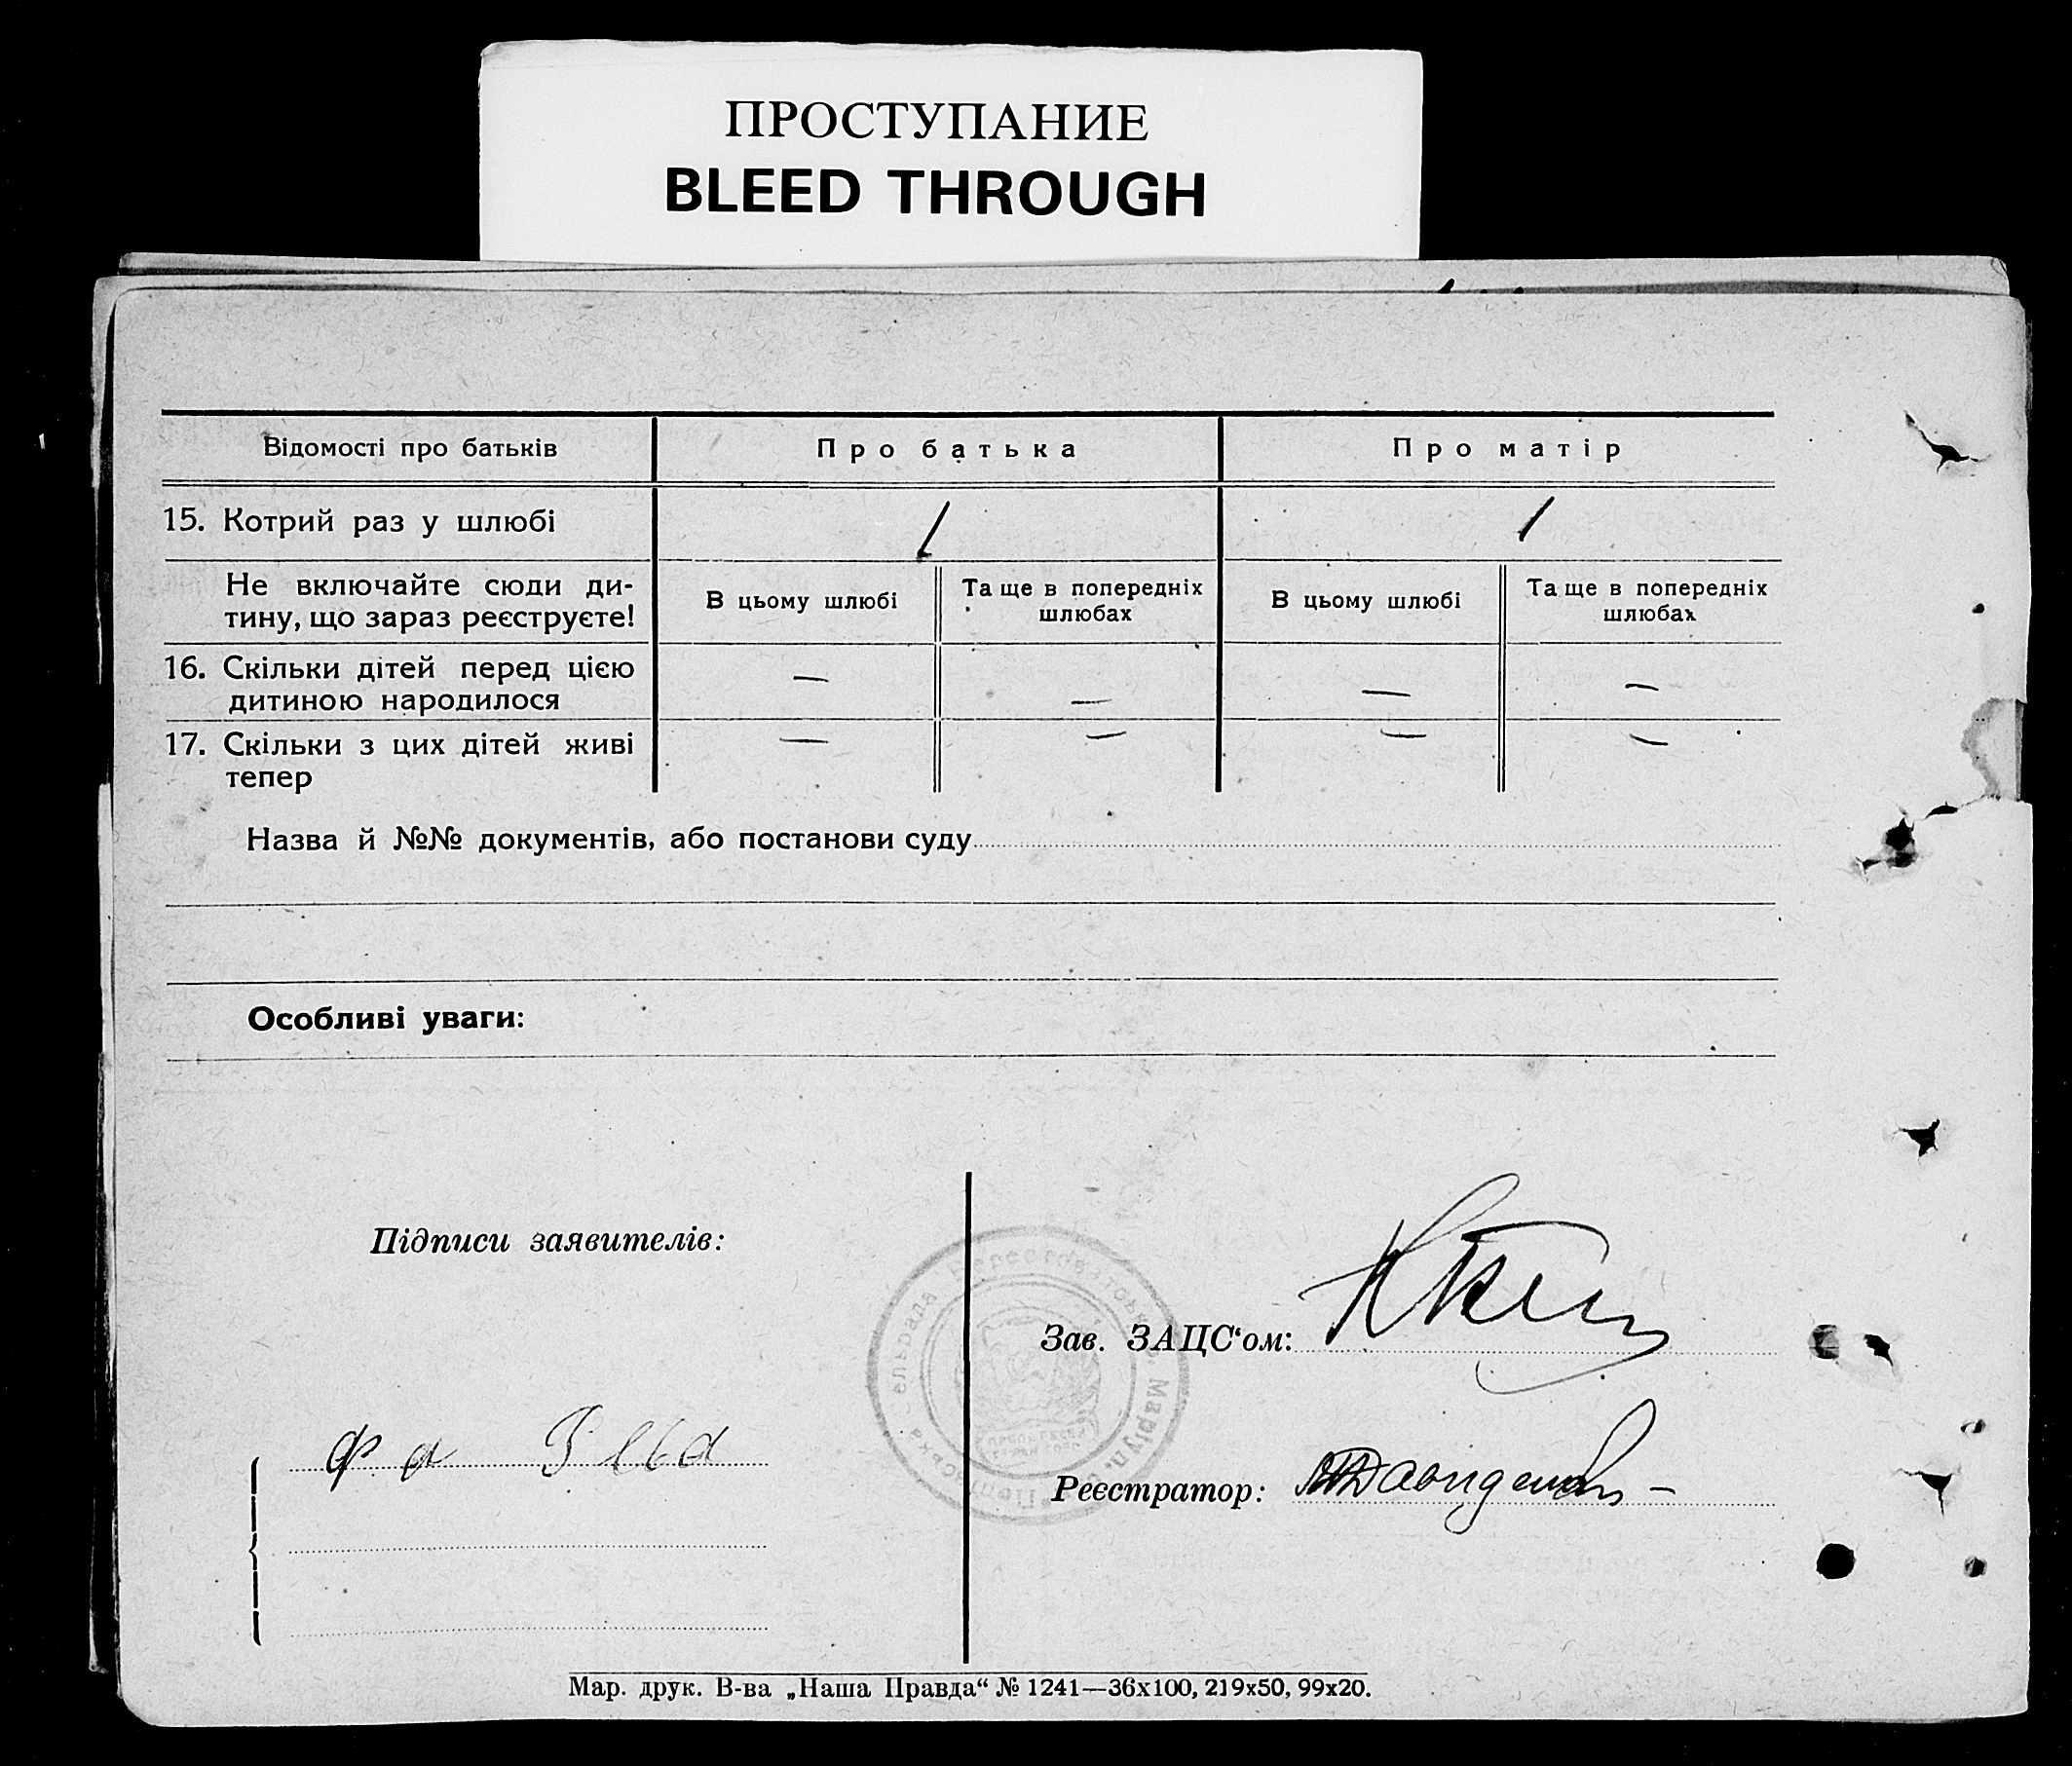 ПРОСТУПАНИЕ
BLEED THROUGH
Відомості про батьків
Про батька
Про матір
15. Котрий раз у шлюбі
1
1
Не включайте сюди ди-
тину, що зараз реєструєте!
В цьому шлюбі
Та ще в попередніх
шлюбах
В цьому шлюбі
Та ще в попередніх
шлюбах
16. Скільки дітей перед цією
дитиною народилося
— — — —
17. Скільки з цих дітей живі
тепер
— — — —
Назва й №№ документів, або постанови суду
Особливі уваги:
Підписи заявителів:
Зав. ЗАЦС‘ом:
Реєстратор:
Мар. друк. В-ва „Наша Правда“ № 1241—36х100, 219х50, 99х20.